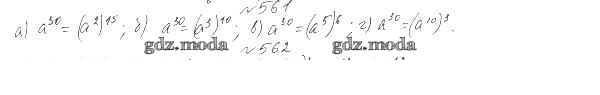 №561
а) a³⁰ = (a²)¹⁵; б) a³⁰ = (a³)¹⁰; в) a³⁰ = (a⁵)⁶; г) a³⁰ = (a¹⁰)³.
gdz.moda gdz.moda
№562